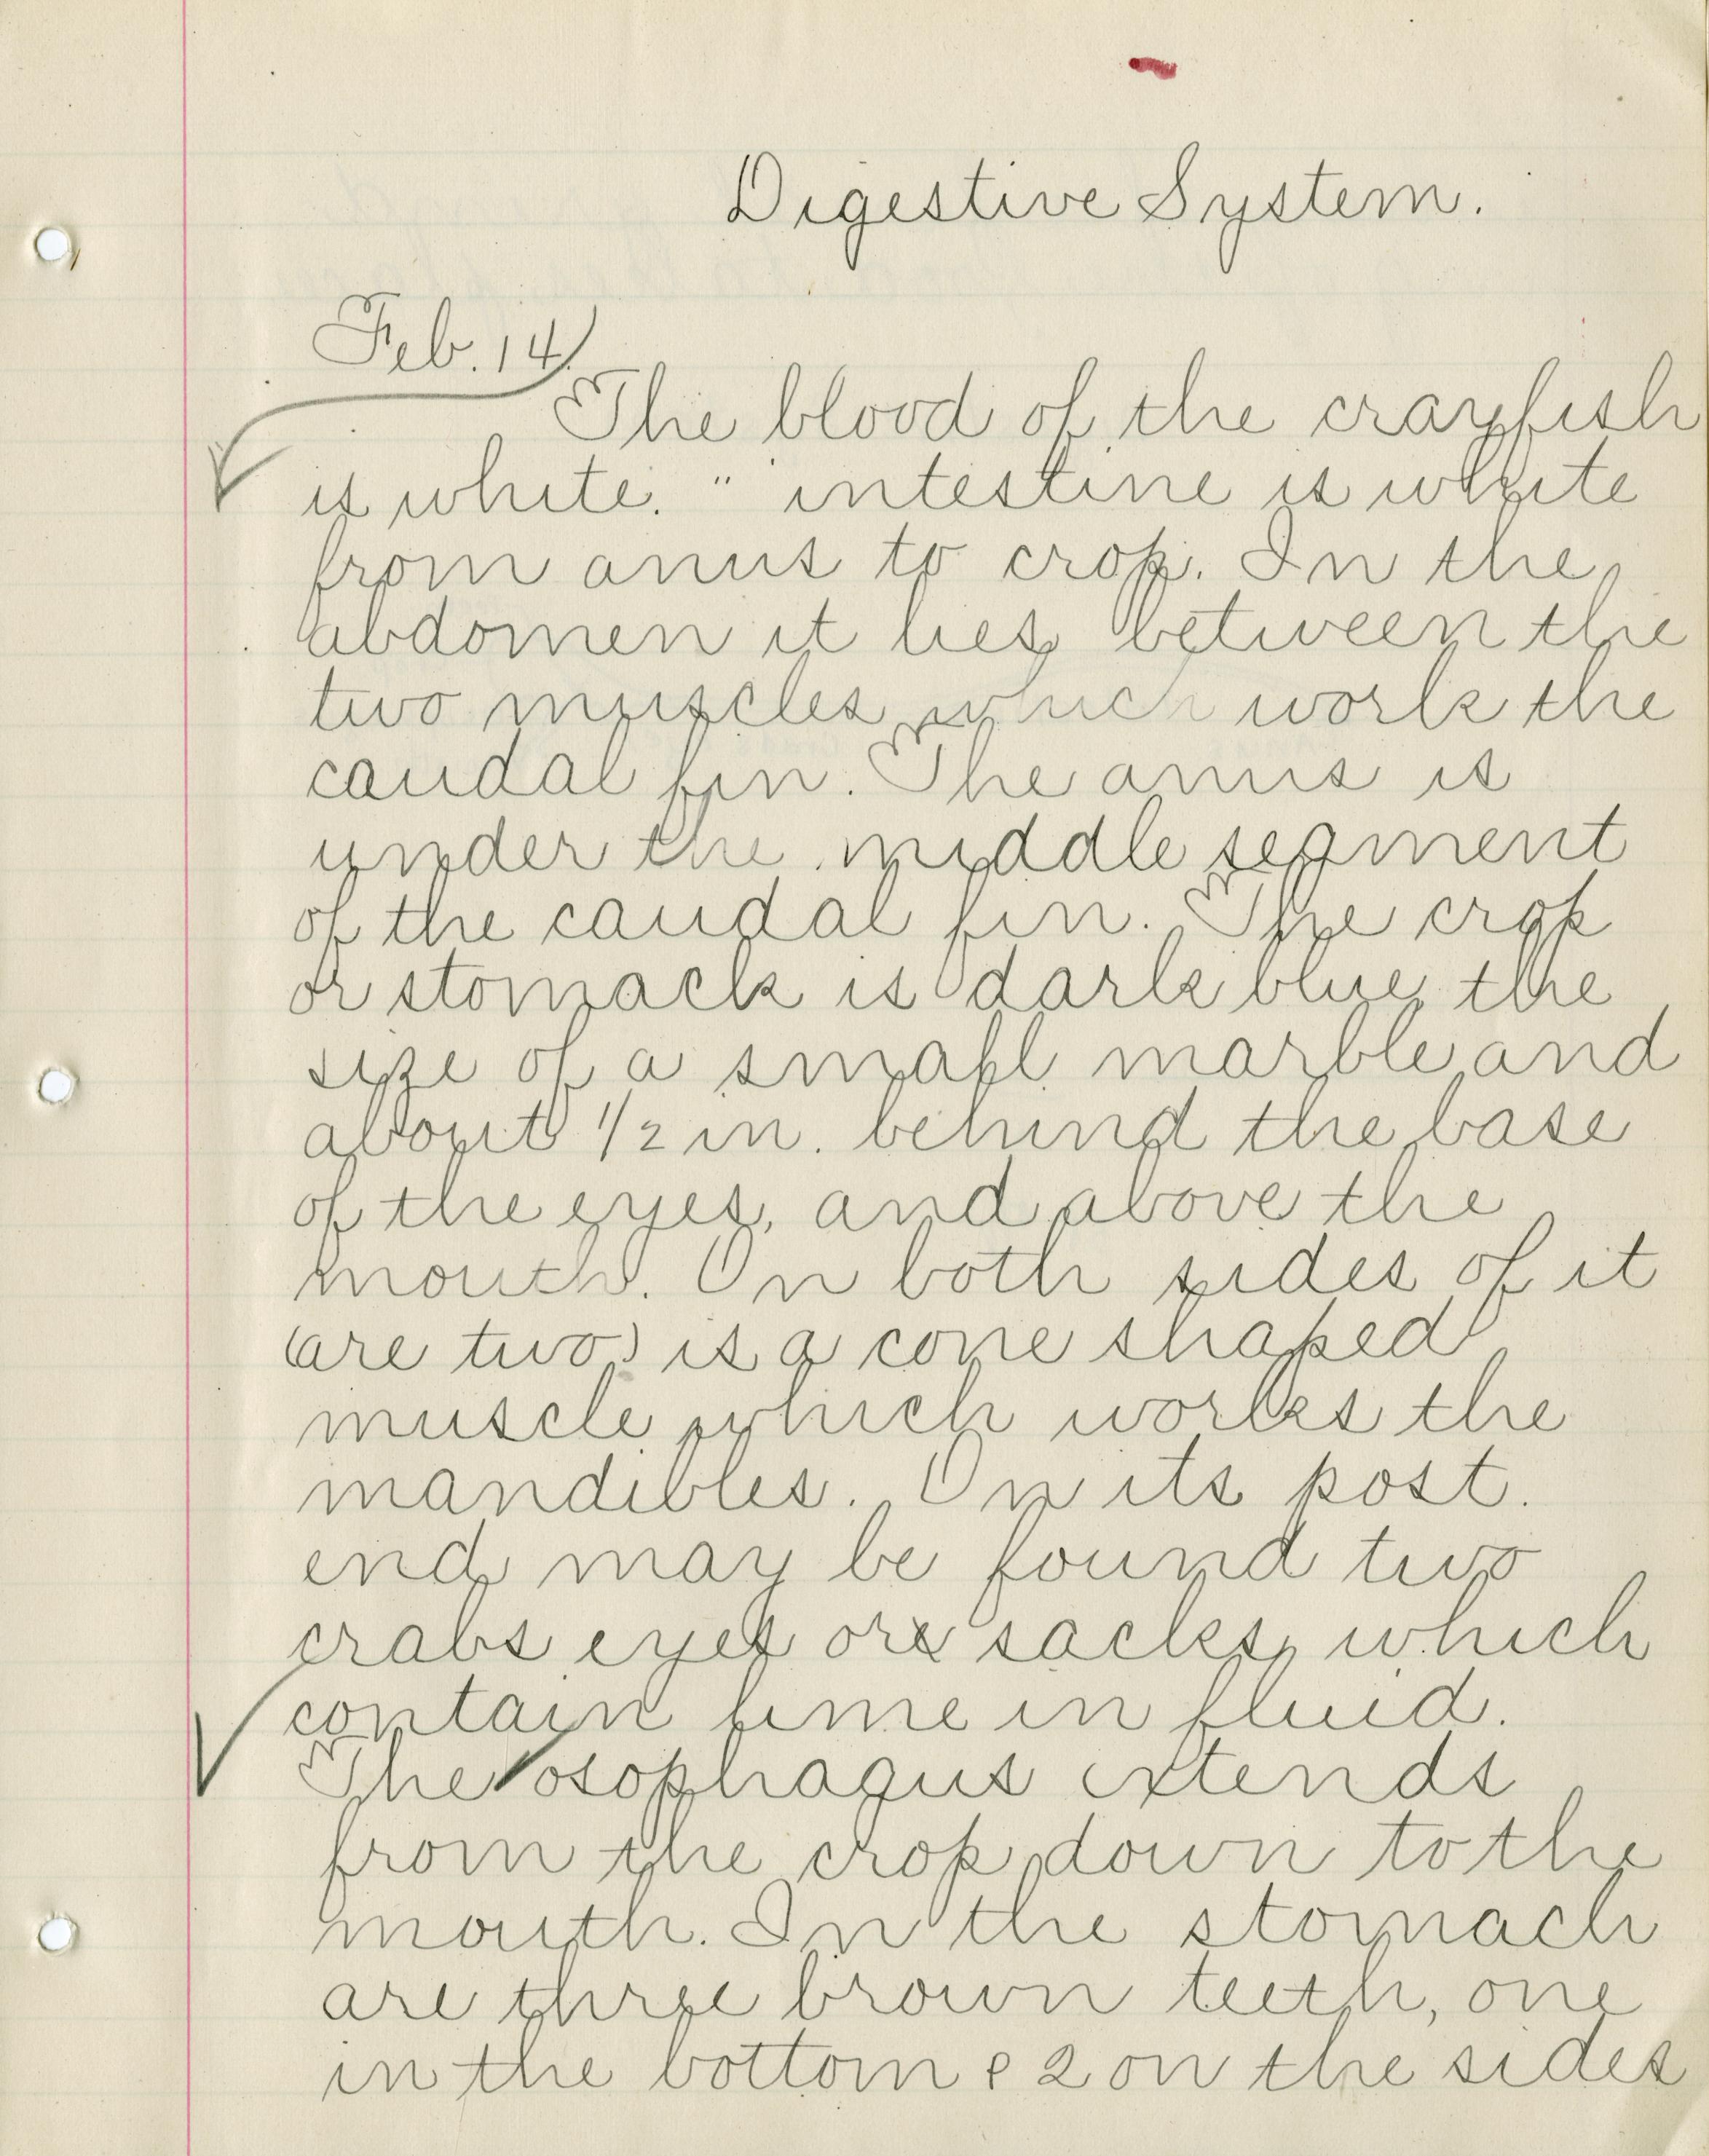 Digestive System.
Feb. 14
The blood of the crayfish
is white. " intestine is white
from anus to crop. In the
abdomen it lies between the
two muscles which work the
caudal fin. The anus is
under the middle segment
of the caudal fin. The crop
or stomack is dark blue, the
size of a small marble and
about 1/2 in. behind the base
of the eyes, and above the
mouth. On both sides of it
(are two) is a cone shaped
muscle which works the
mandibles. On its post.
end may be found two
crabs eyes or sacks, which
contain lime in fluid.
The osophagus extends
from the crop down to the
mouth. In the stomach
are three brown teeth, one
in the bottom & 2 on the sides